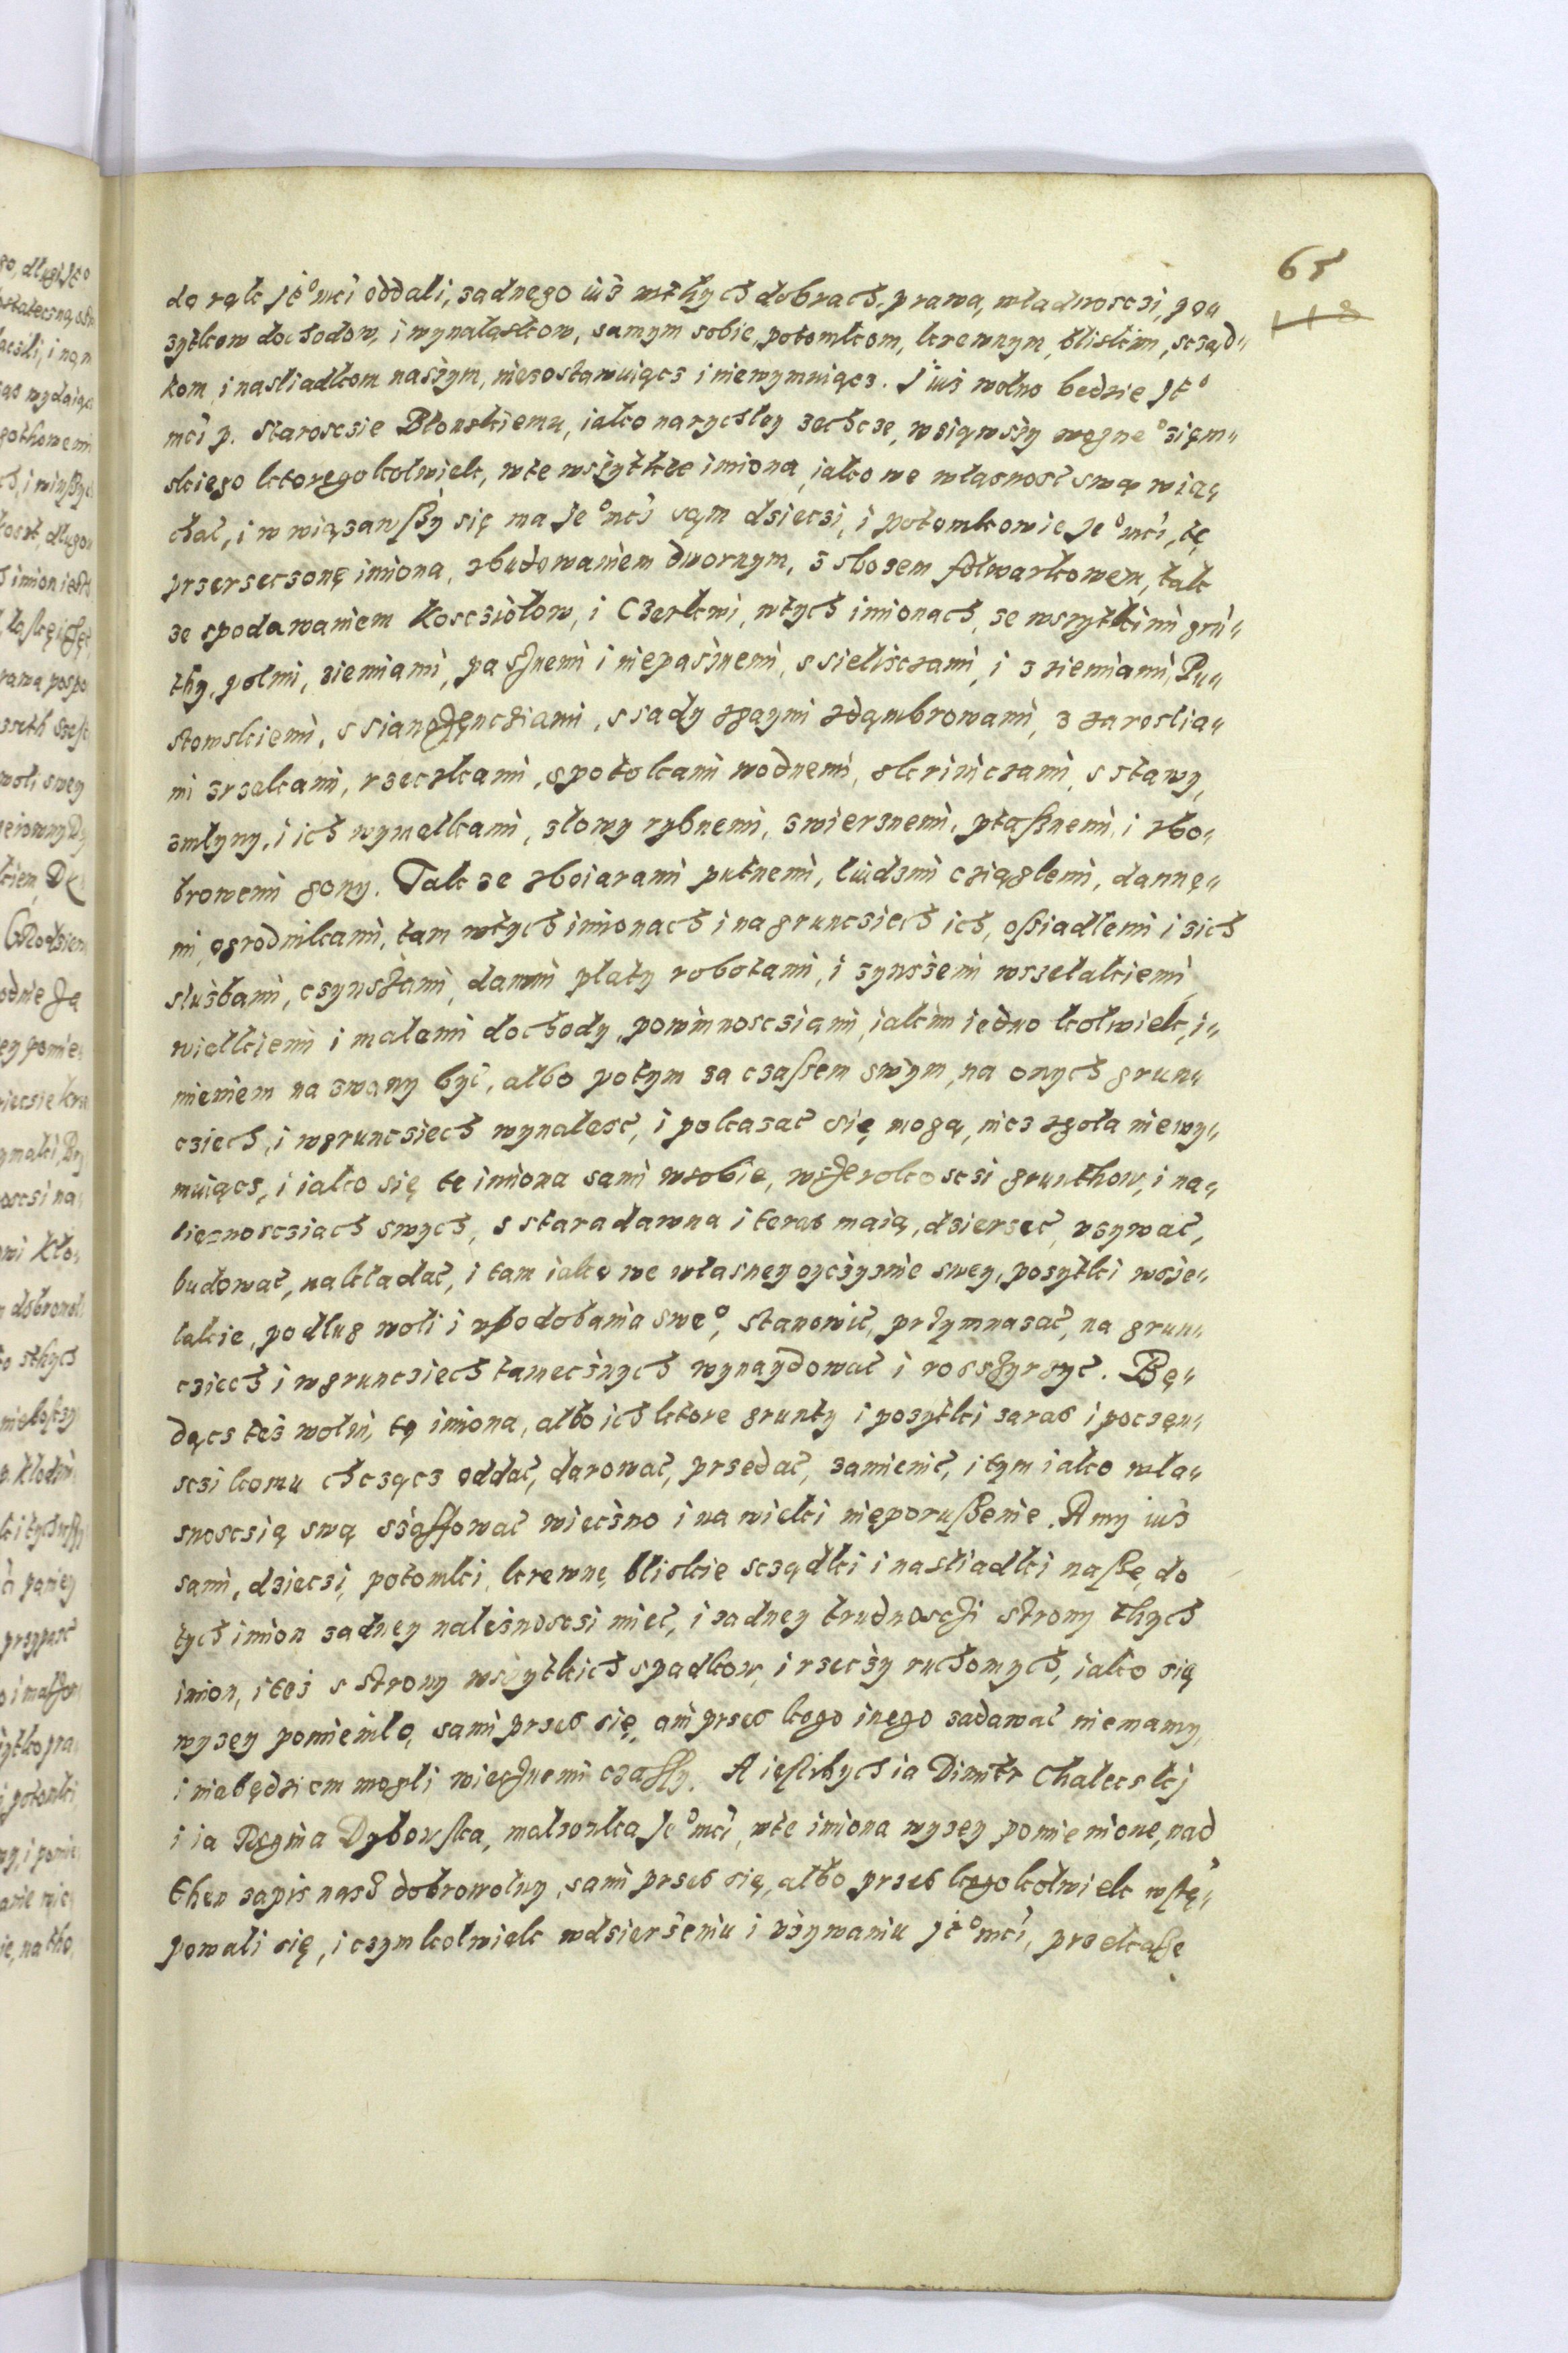 65
118
do rąk Jeº mci oddali, zadnego iuż wthych dobrach, prawa, władnosczi, po„
zytkow dochodow, i wynalaskow, samym sobie, potomkom, krewnym, bliskim, scząd„
kom i nasliadkom naszym, niezostawuiącz i niewymuiącz. Juz wolno będzie Jeº
mci p. Staroscsie Błonskiemu, iako narychley zechcze, wziąwszy wozneº ziem„
skiego ktoregokolwiek, wte wszytkie imiona, iako we własnosć swą wia„
chać, i w wiązawszy się ma Jeº mci sąm dzieczi, i potomkowie Jeº mci, te
przerzeczone imiona, zbudowaniem dwornym, z sbozem folwarkowem, tak
ze spodawaniem Kosciołow, i Czerkwi, wtych imionach, ze wszytkimi grù„
thy, polmi, ziemiami, pasznemi i niepasznemi, s sieliszczami, i z ziemiami Pu„
stowskiemi, s sianożęnciami, s sady zgaymi zdąmbrowami, z zaroslia„
mi zrzekami, rzeczkami, spotokami wodnemi, skriniczami, s stawy,
zmłyny, i ich wymelkami, złowy rybnemi, zwierznemi, ptasznemi, i zbo„
browemi gony. Tak ze zboiarami putnemi, liudzmi cziągłemi, dannę„
mi, ogrodnikami, tam wtych imionach i na gruncziech ich, osiadłemi i zich
służbami, czynszami, danmi płaty robotami, i zynszemi wszelakiemi
wielkiemi i małemi dochody, powinnoscziami, iakim iedno kolwiek, i„
mieniem nazwany być, albo potym za czassem swym, na onych grun„
cziech, i wgruncziech wynalesc, i pokazać się mogą, nicz zgoła niewy„
muiącz, i iako się te imiona sami wsobie, wszerokosczi grunthow, i na„
lieznoscziach swych, s staradawna i teraz maią, dzierzeć, vzywać,
budować, nakładać, i tam iako we własney oyczyznie swey, pozytki wsze„
lakie, podług woli i vpodobania sweº, stanowić, przymnazać, na grun„
cziech i wgruncziech tamecznych wynaydować i rozszyrzyć. Bę„
dącz też wolni, tę imiona, albo ich ktore grunty i pozytki zaraz i poczęn„
sczi komu chcząc oddać, darować, przedać, zamienić, i tym iako wła„
snosczią swą szaffować wieczno i na wieki nieporuszenie. A my iuż
sami, dzieczi, potomki, krewne, bliskie scządki i nasliadki nasze, do
tych imion zadney nalieznosczi mieć, i zadney trudnosczi strony thych
imion, i też s strony wszytkich spadkow, i rzeczy ruchomych, iako się
wyzey pomieniło, sami przez się, ani przez kogo inego zadawać niemamy,
i niebędziem mogli wiecznemi czassy. A ieslibych ia Dimitr Chaleczkj
i ia Regina Dybowska, małzonka Jeº mci, wte imiona wyzey pomienione, nad
then zapis nasz dobrowolny, sami przez się, albo przez kogokolwiek wstę„
powali się, i czymkolwiek wdzierżeniu i vżywaniu Jeº mci, przekaze